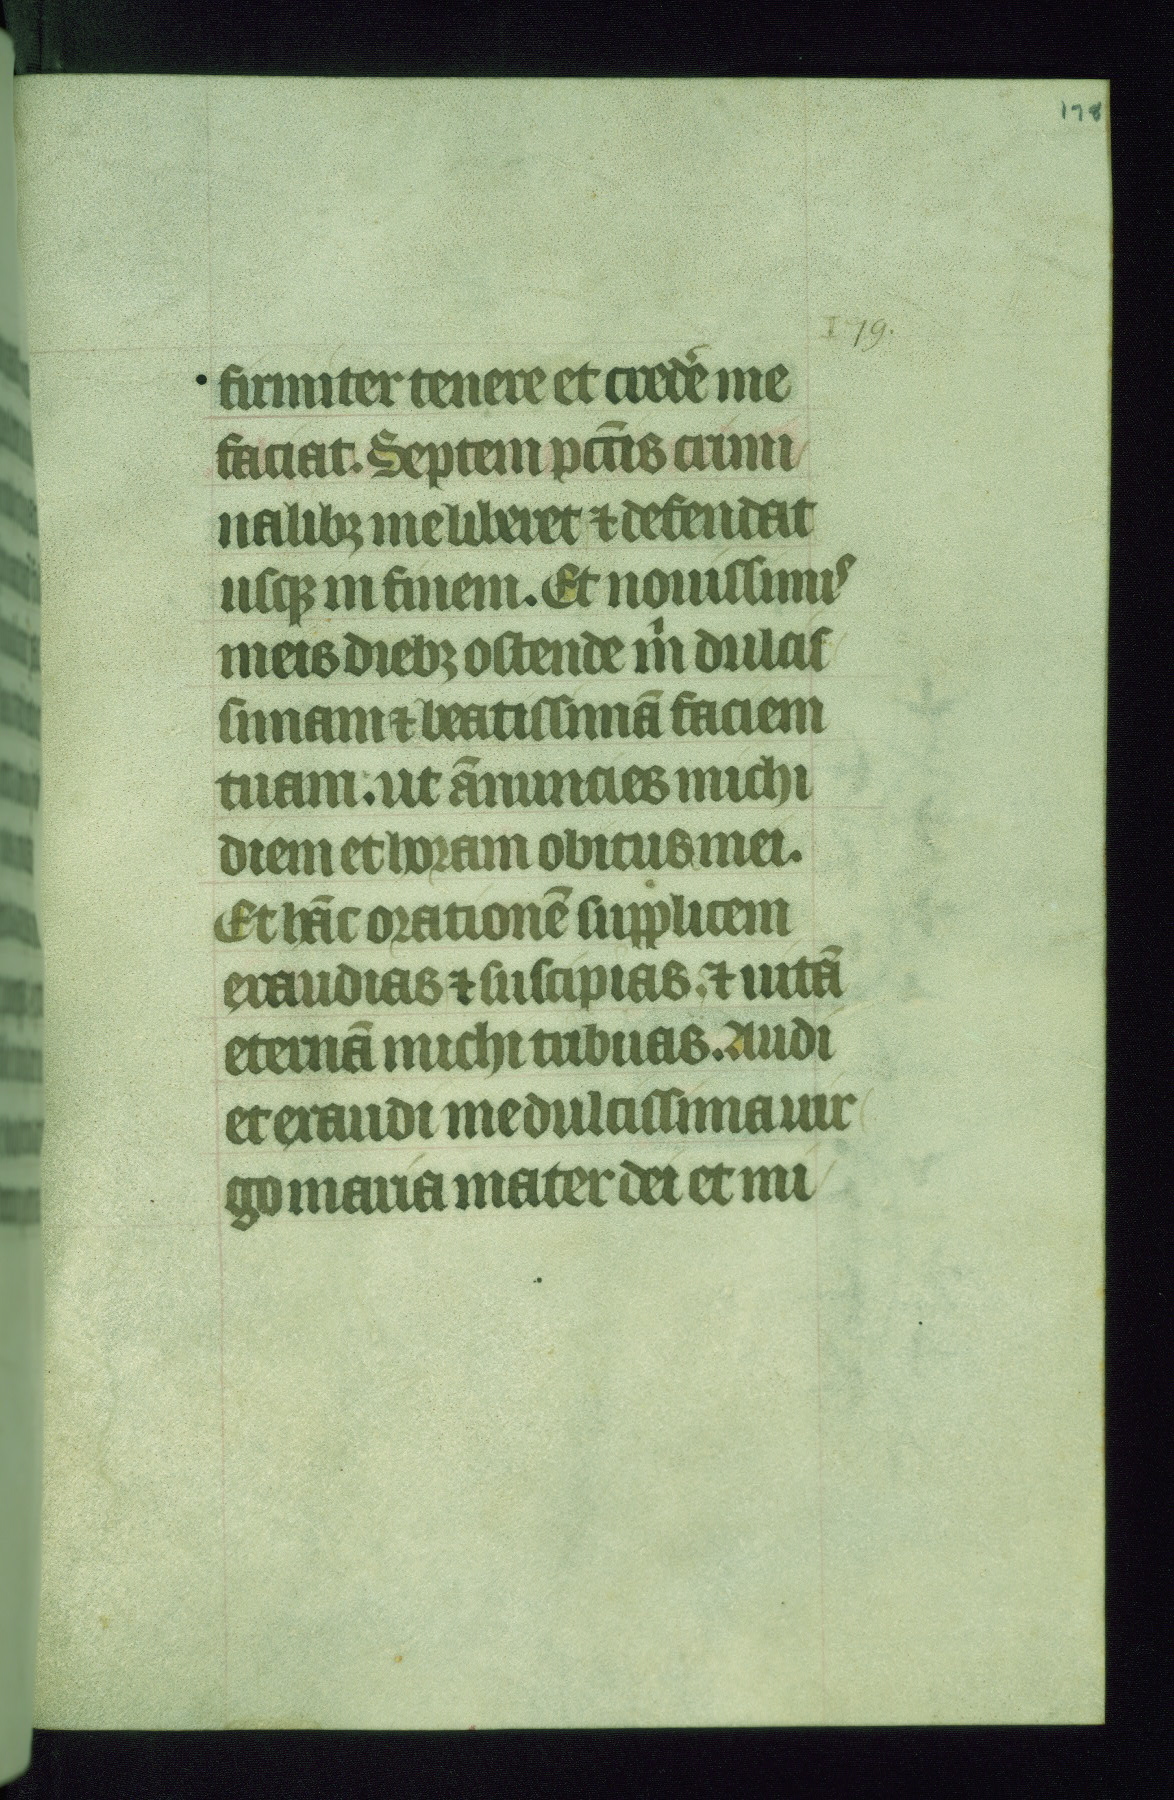 178
179.
firmiter tenere et crede᷑ me
faciat. Septem pct̄is crimi
nalibꝫ me liberet ⁊ defendat
usqꝫ in finem. Et nouissimis
meis diebꝫ ostende m̍ dulcis
simam ⁊ beatissimā faciem
tuam. ut ānuncies michi
diem et horam obitus mei.
Et hāc orationē supplicem
exaudias ⁊ suscipias. ⁊ uitā
eternā michi tribuas. Audi
et exaudi me dulcissima uir
go maria mater dei et mi